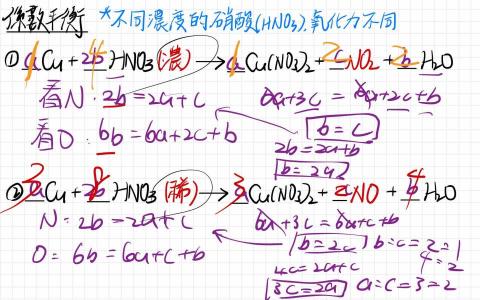 係數平衡 *不同濃度的硝酸(HNO₃),氧化力不同
① aCu + 2bHNO₃ (濃) → aCu(NO₃)₂ + cNO₂ + bH₂O
看N: 2b = 2a+c
6a+3c = 6a+2c+b
看O: 6b = 6a+2c+b
b = c
2b = 2a+b
b = 2a
② aCu + 2bHNO₃ (稀) → aCu(NO₃)₂ + cNO + bH₂O
N: 2b = 2a+c
6a+3c = 6a+c+b
O: 6b = 6a+c+b
b = 2c b:c = 2:1
4:2
4c = 2a+c
3c = 2a a:c = 3:2